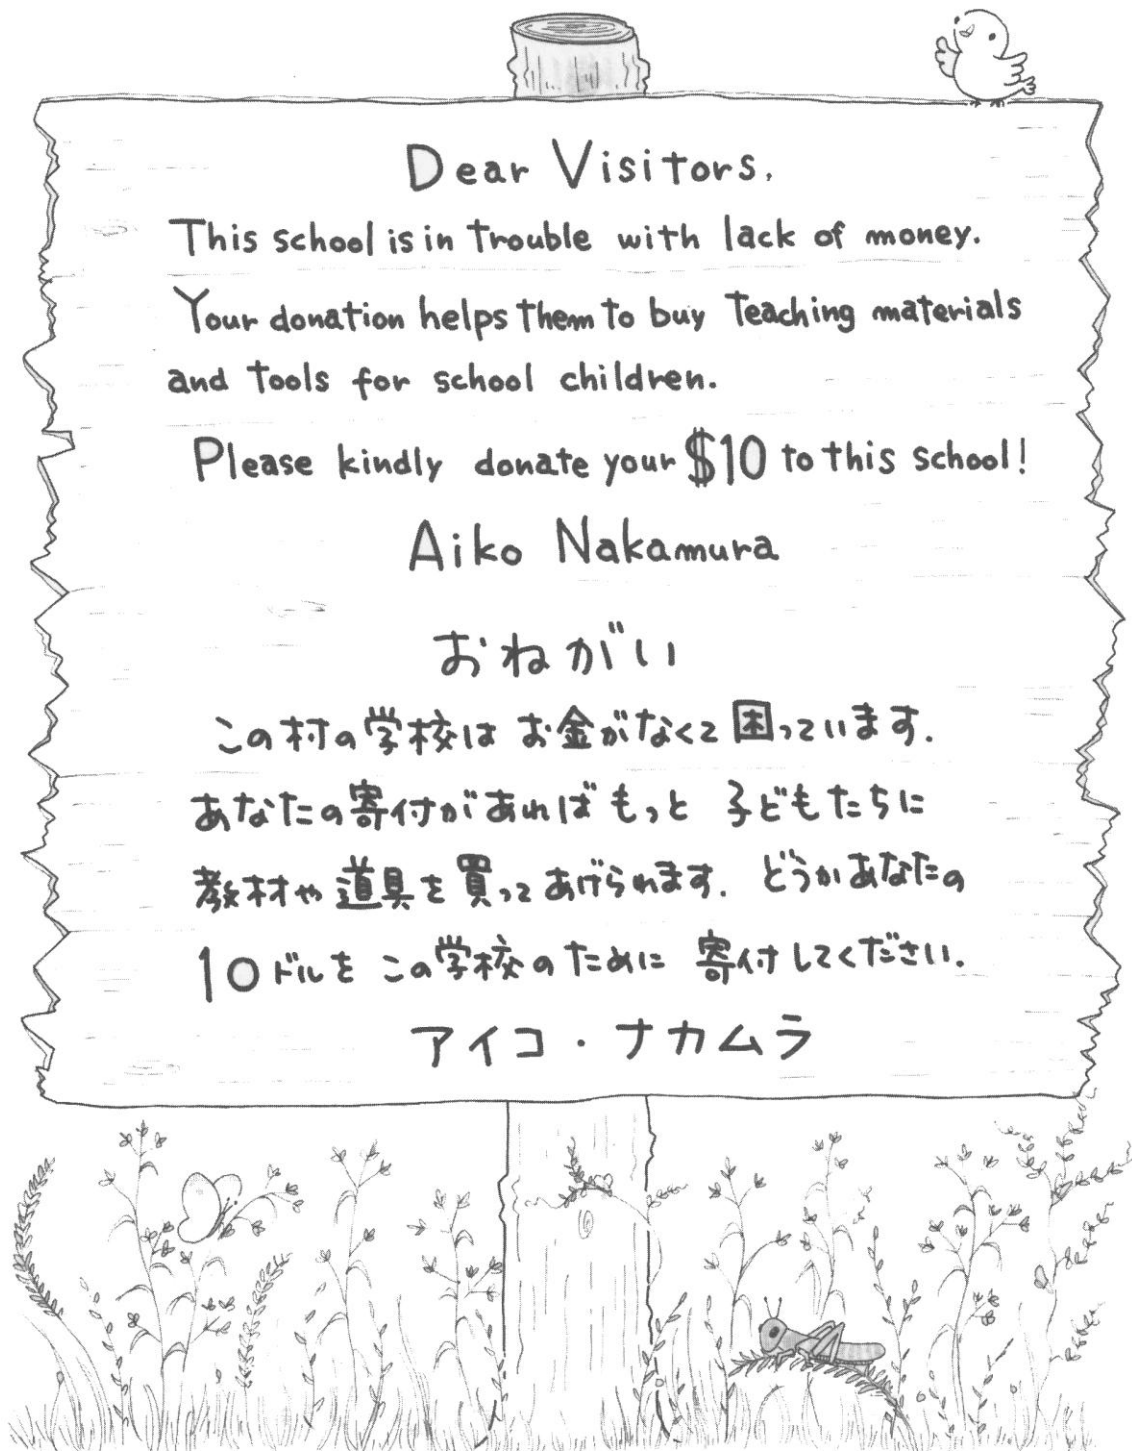 Dear Visitors,
This school is in trouble with lack of money.
Your donation helps them to buy Teaching materials
and tools for school children.
Please kindly donate your $10 to this school!
Aiko Nakamura
おねがい
この村の学校は お金がなくて 困っています.
あなたの寄付があれば もっと 子どもたちに
教材や 道具を 買って あげられます. どうかあなたの
10ドルを この学校のために 寄付してください.
アイコ・ナカムラ